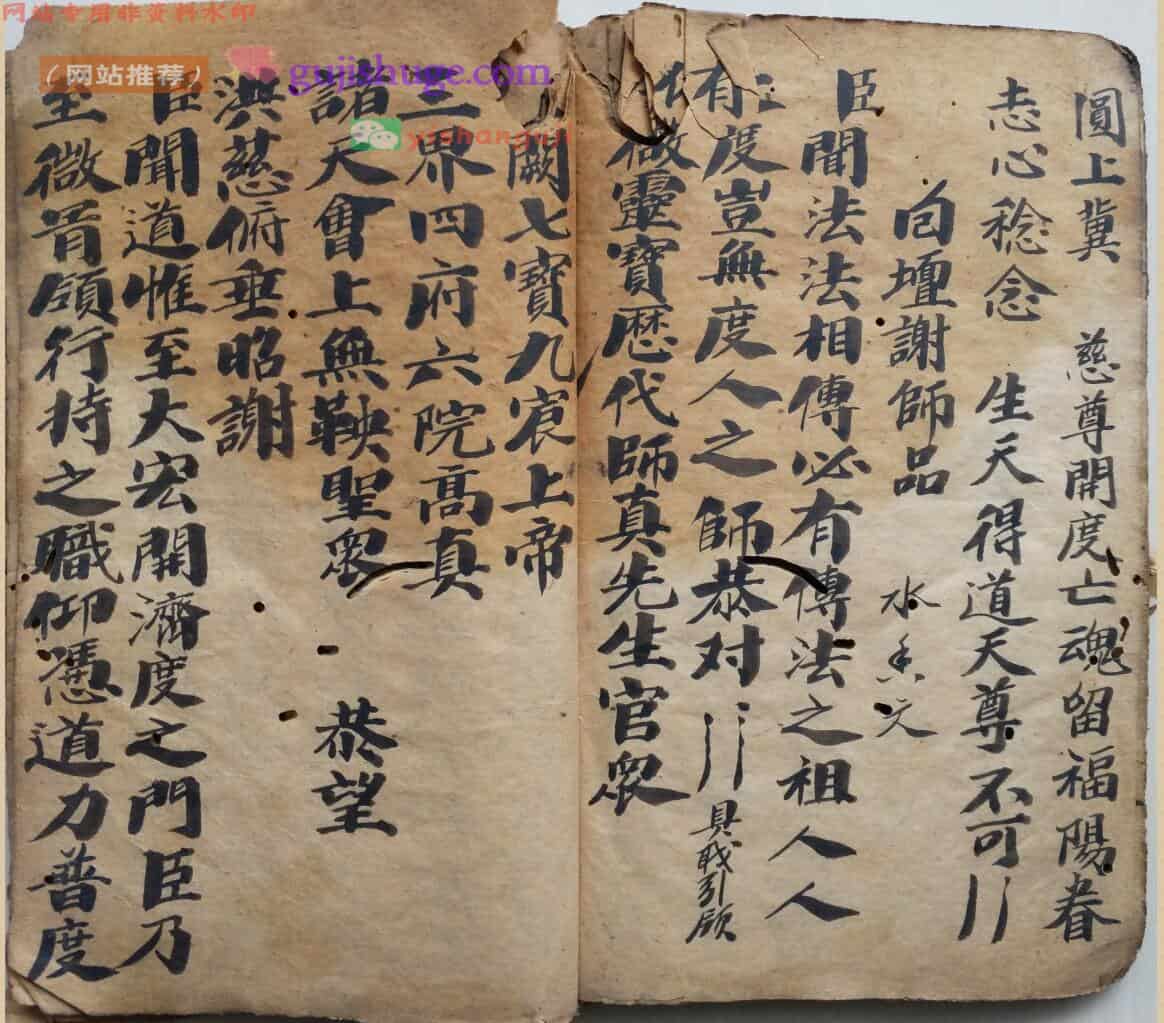 网站专用非资料水印
（网站推荐）
gujishuge.com
yishanguji
圓上冀 慈尊開度亡魂留福陽眷
志心稔念 生天得道天尊不可
白壇謝師品 水
臣聞法法相傳必有傳法之祖人人
有度豈無度人之師恭对 具職引領
微靈寶歷代師真先生官眾
闕七寶九宸上帝
三界四府六院高真
諸天會上無鞅聖眾 恭望
洪慈俯垂昭謝
臣聞道惟至大宏開濟度之門臣乃
至微胥領行持之職仰憑道力普度